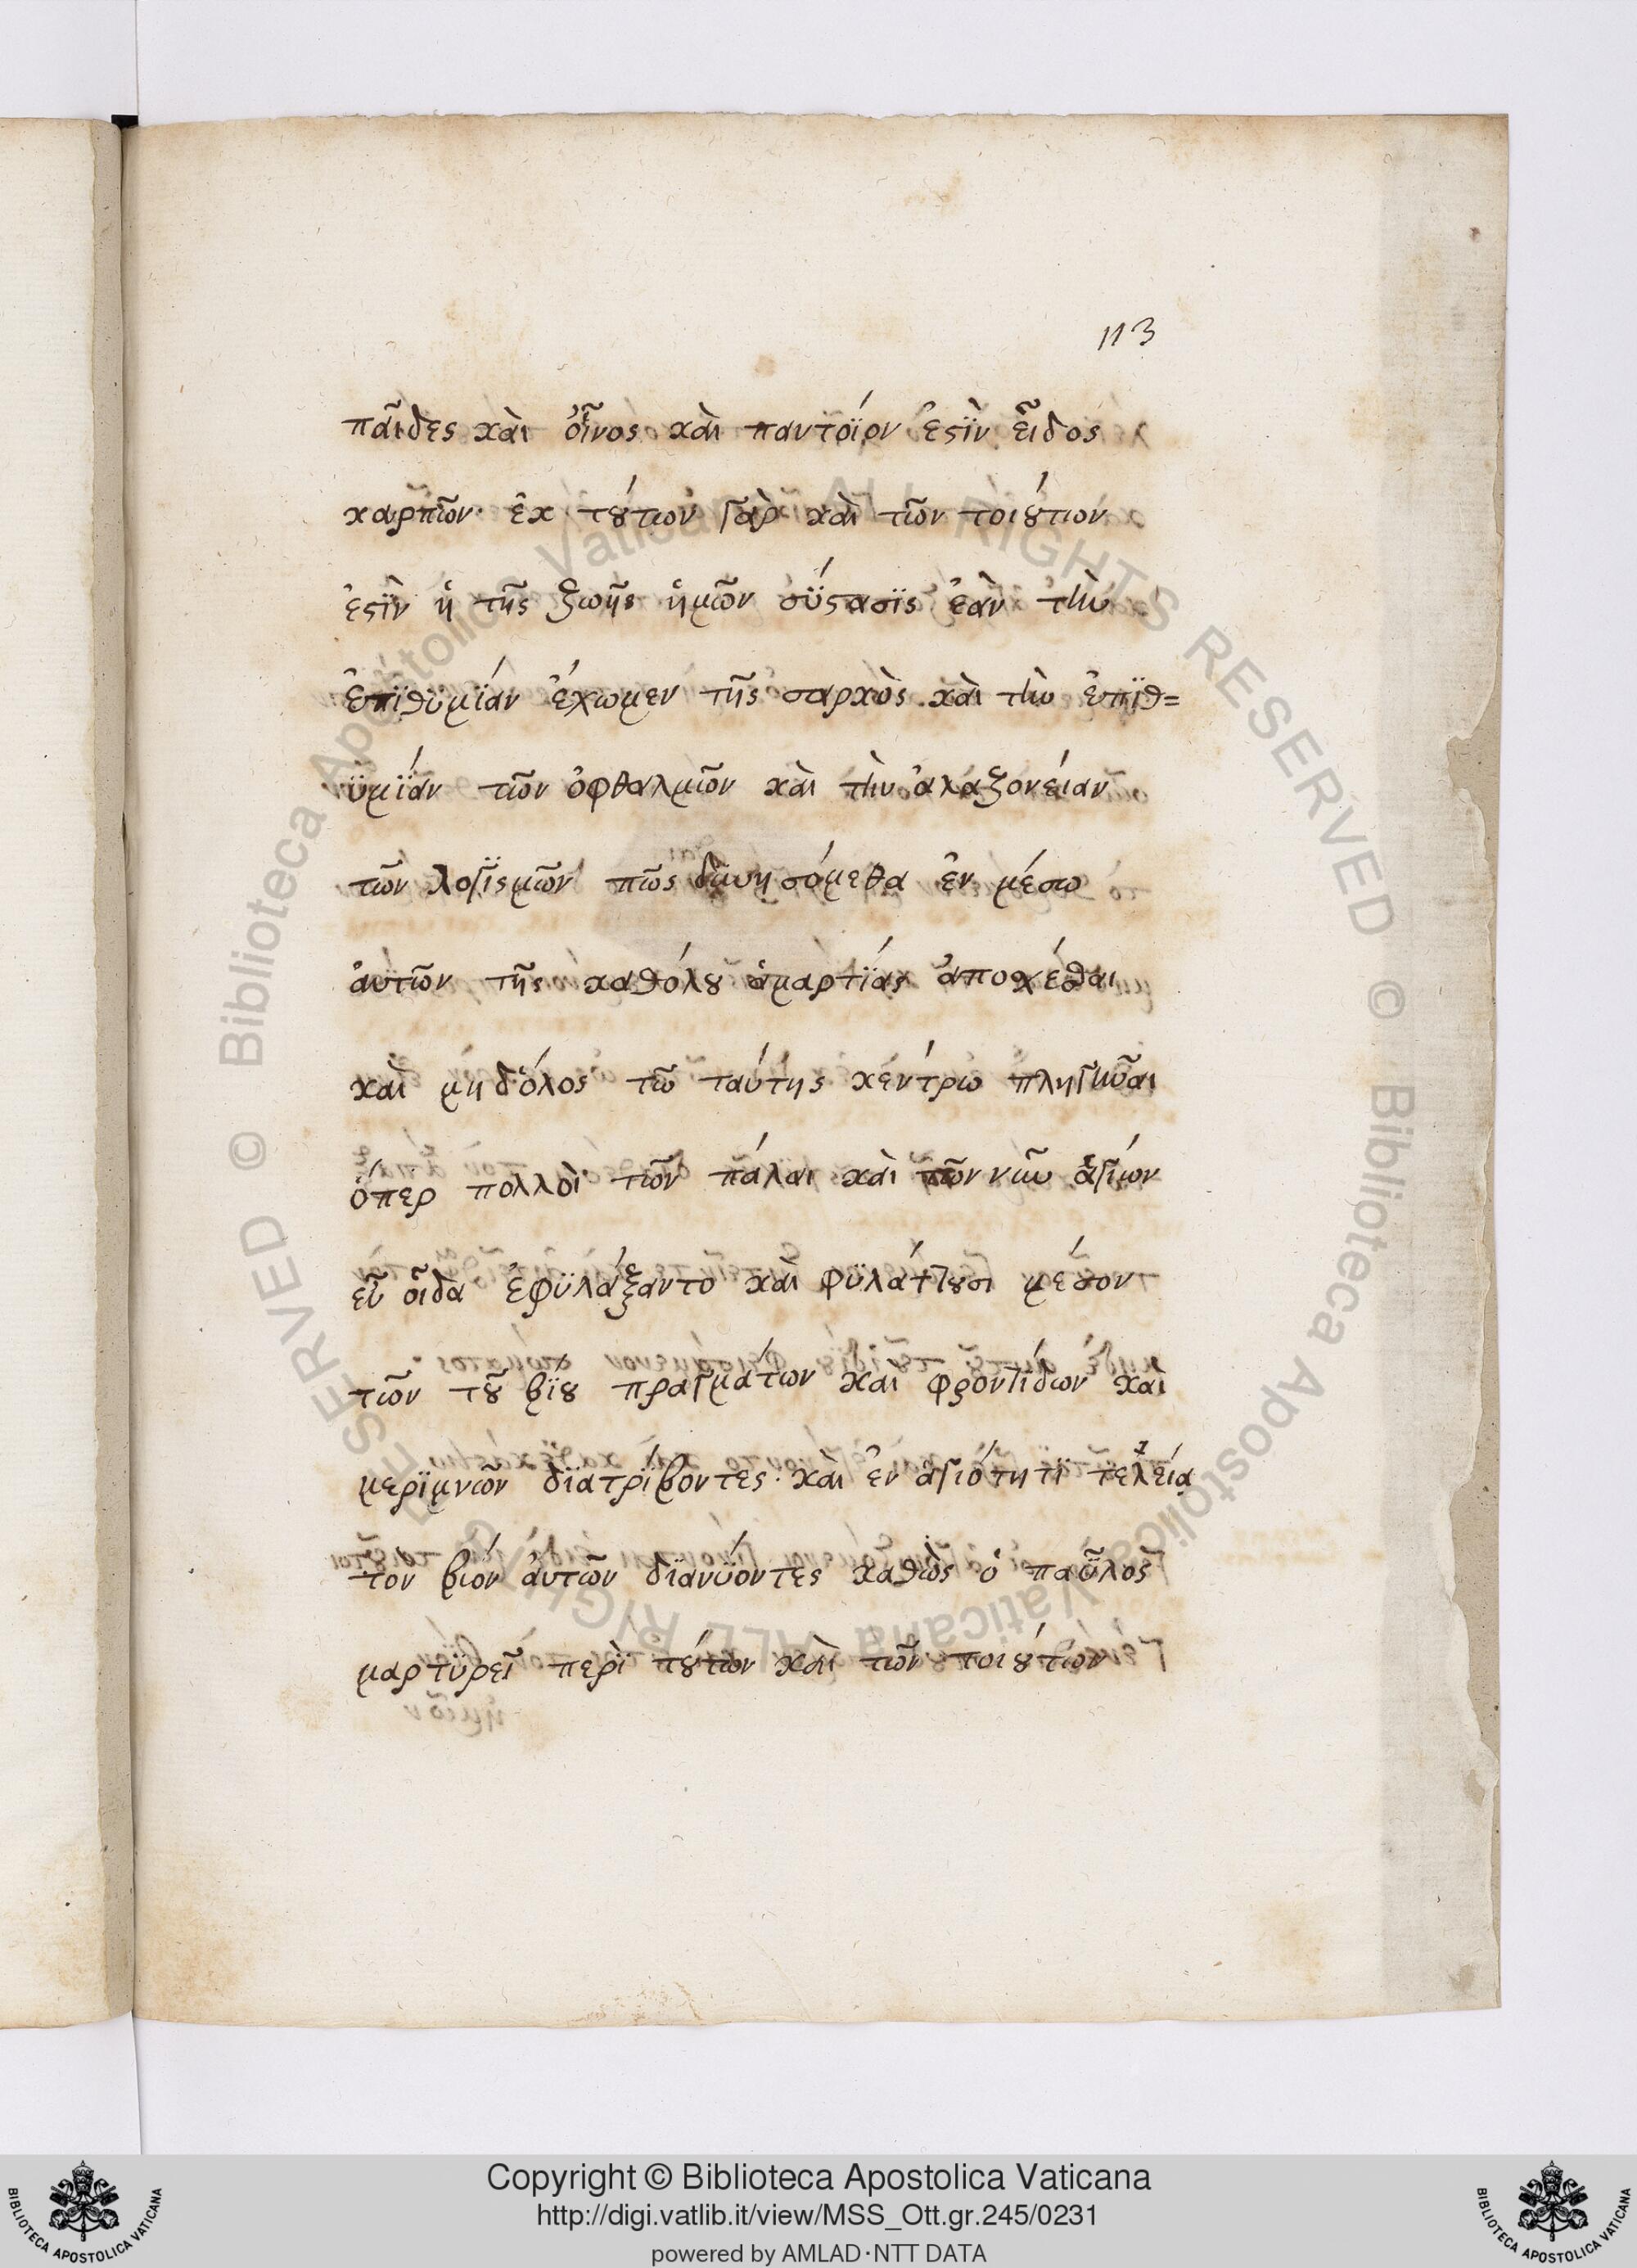 113
παῖδες καὶ οἶνος καὶ παντοίον ἐστὶν εἶδος
καρπῶν· ἐκ τούτων γὰρ καὶ τῶν τοιούτων
ἐστὶν ἡ τῆς ζωῆς ἡμῶν σύστασϊς ἐὰν τὴν
ἐπϊθϋμίαν ἔχωμεν τῆς σαρκὸς καὶ τὴν ἐπϊθ=
ϋμίαν τῶν ὀφθαλμῶν καὶ τὴν ἀλαζονείαν
τῶν λογϊσμῶν πῶς δυνησόμεθα ἐν μέσω
ἀυτῶν τῆς καθόλου ἁμαρτίας ἀποσχέσθαι
καὶ μηδόλος τῶ ταύτης κέντρω πληγῆναι
ὅπερ πολλοὶ τῶν πάλαι καὶ τῶν νῦν ἁγίων
εὖ οἶδα ἐφϋλάξαντο καὶ φϋλάττουσι μέσον
τῶν τοῦ βϊου πραγμάτων καὶ φροντίδων καὶ
μερϊμνῶν δϊατρίβοντες· καὶ ἐν ἁγιότητϊ τελεία
τὸν βίον ἀυτῶν δϊανϋοντες καθὼς ὁ παῦλος
μαρτϋρεῖ περὶ τούτων καὶ τῶν τοιούτων
© Biblioteca Apostolica Vaticana ALL RIGHTS RESERVED © Biblioteca Apostolica Vaticana ALL RIGHTS RESERVED
Copyright © Biblioteca Apostolica Vaticana
http://digi.vatlib.it/view/MSS_Ott.gr.245/0231
powered by AMLAD·NTT DATA
BIBLIOTECA APOSTOLICA VATICANA
BIBLIOTECA APOSTOLICA VATICANA